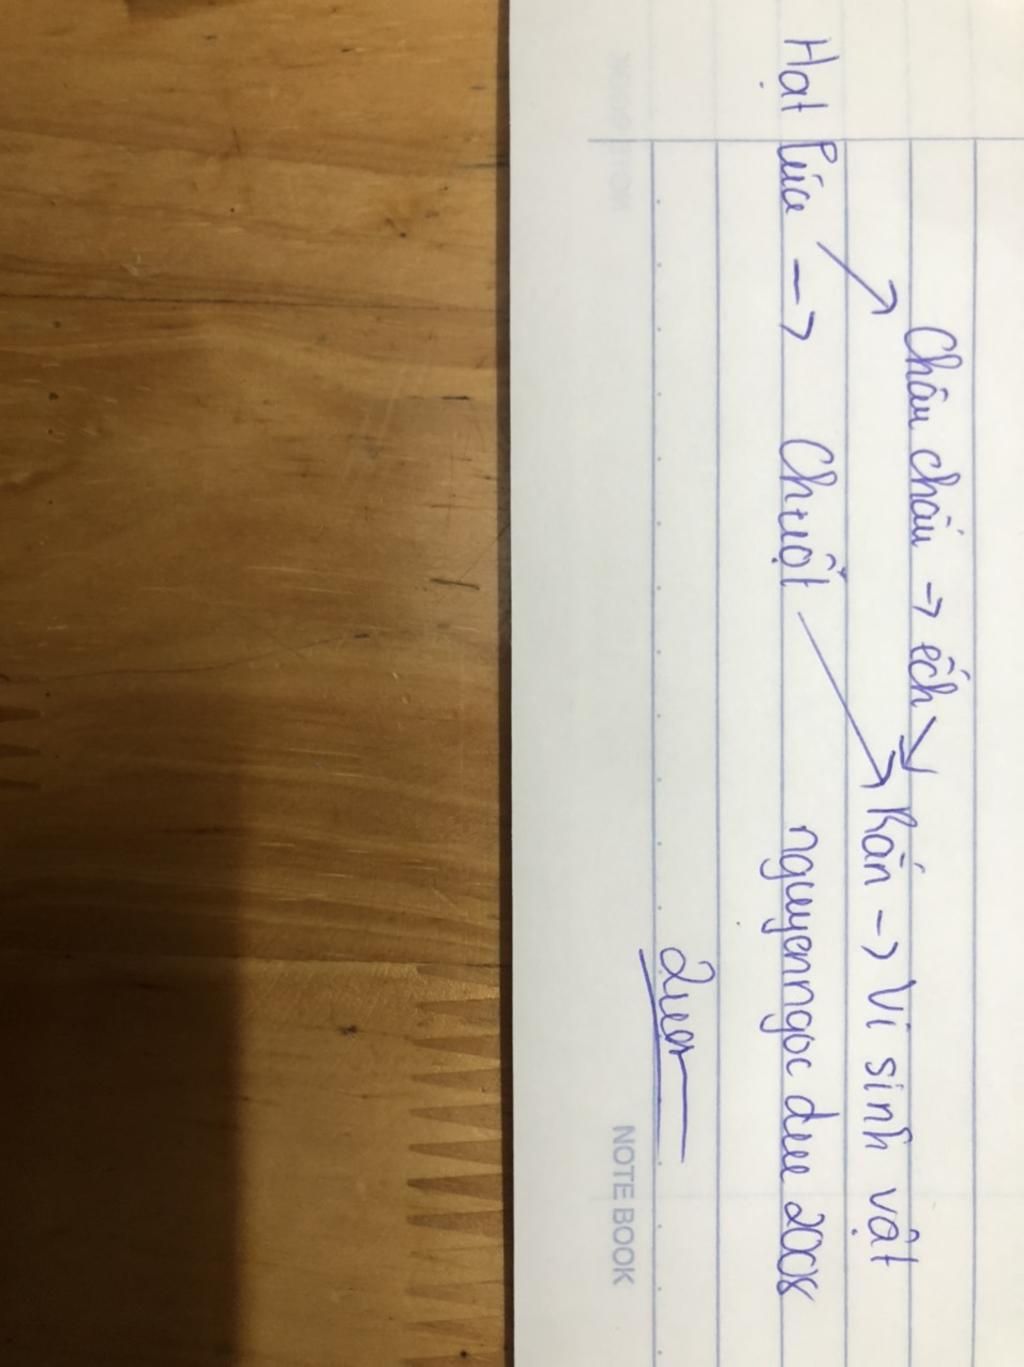 Châu chấu → ếch
Rắn → Vi sinh vật
Hạt lúa → Chuột
nguyenngoc due 2008
NOTE BOOK